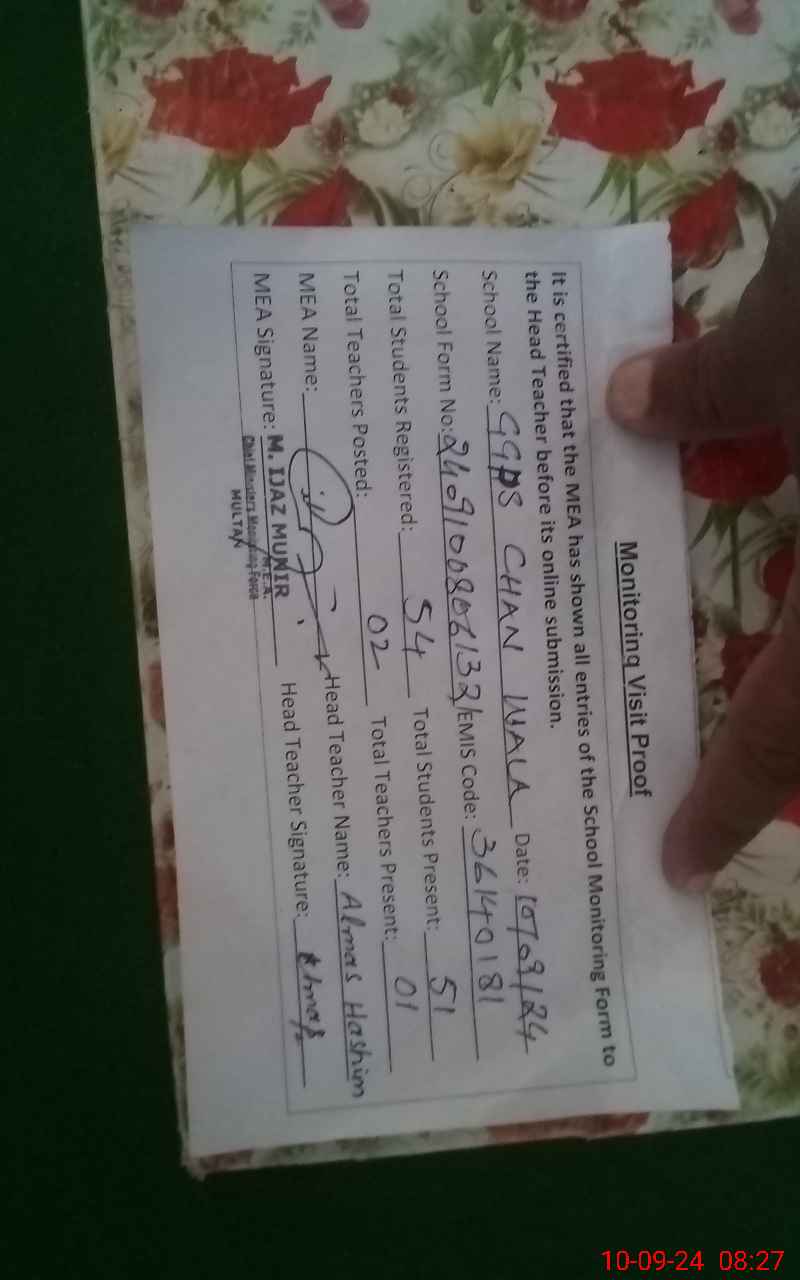 Monitoring Visit Proof
It is certified that the MEA has shown all entries of the School Monitoring Form to
the Head Teacher before its online submission.
School Name: GGPS CHAN WALA Date: 10/09/24
School Form No: 2409100806132/EMIS Code: 36140181
Total Students Registered: 54 Total Students Present: 51
Total Teachers Posted: 02 Total Teachers Present: 01
MEA Name: Head Teacher Name: Almas Hashim
MEA Signature: M. IJAZ MUNIR Head Teacher Signature: Almas
M.E.A.
Chief Ministers Monitoring Force
MULTAN
10-09-24 08:27